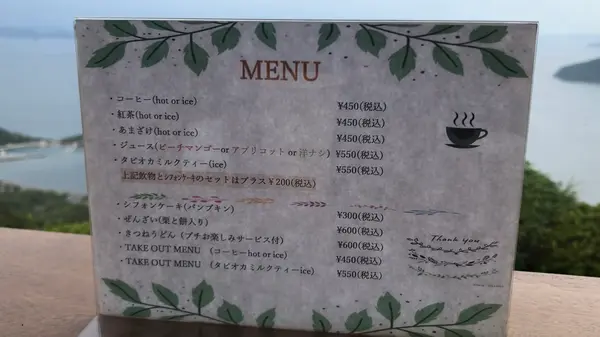 MENU
・コーヒー(hot or ice) ¥450(税込)
・紅茶(hot or ice) ¥450(税込)
・あまざけ(hot or ice) ¥450(税込)
・ジュース(ピーチマンゴーor アプリコット or 洋ナシ) ¥550(税込)
・タピオカミルクティー(ice) ¥550(税込)
上記飲物とシフォンケーキのセットはプラス¥200(税込)
・シフォンケーキ(パンプキン) ¥300(税込)
・ぜんざい(栗と餅入り) ¥600(税込)
・きつねうどん(プチお楽しみサービス付) ¥600(税込)
・TAKE OUT MENU (コーヒーhot or ice) ¥450(税込)
・TAKE OUT MENU (タピオカミルクティーice) ¥550(税込)
Thank you